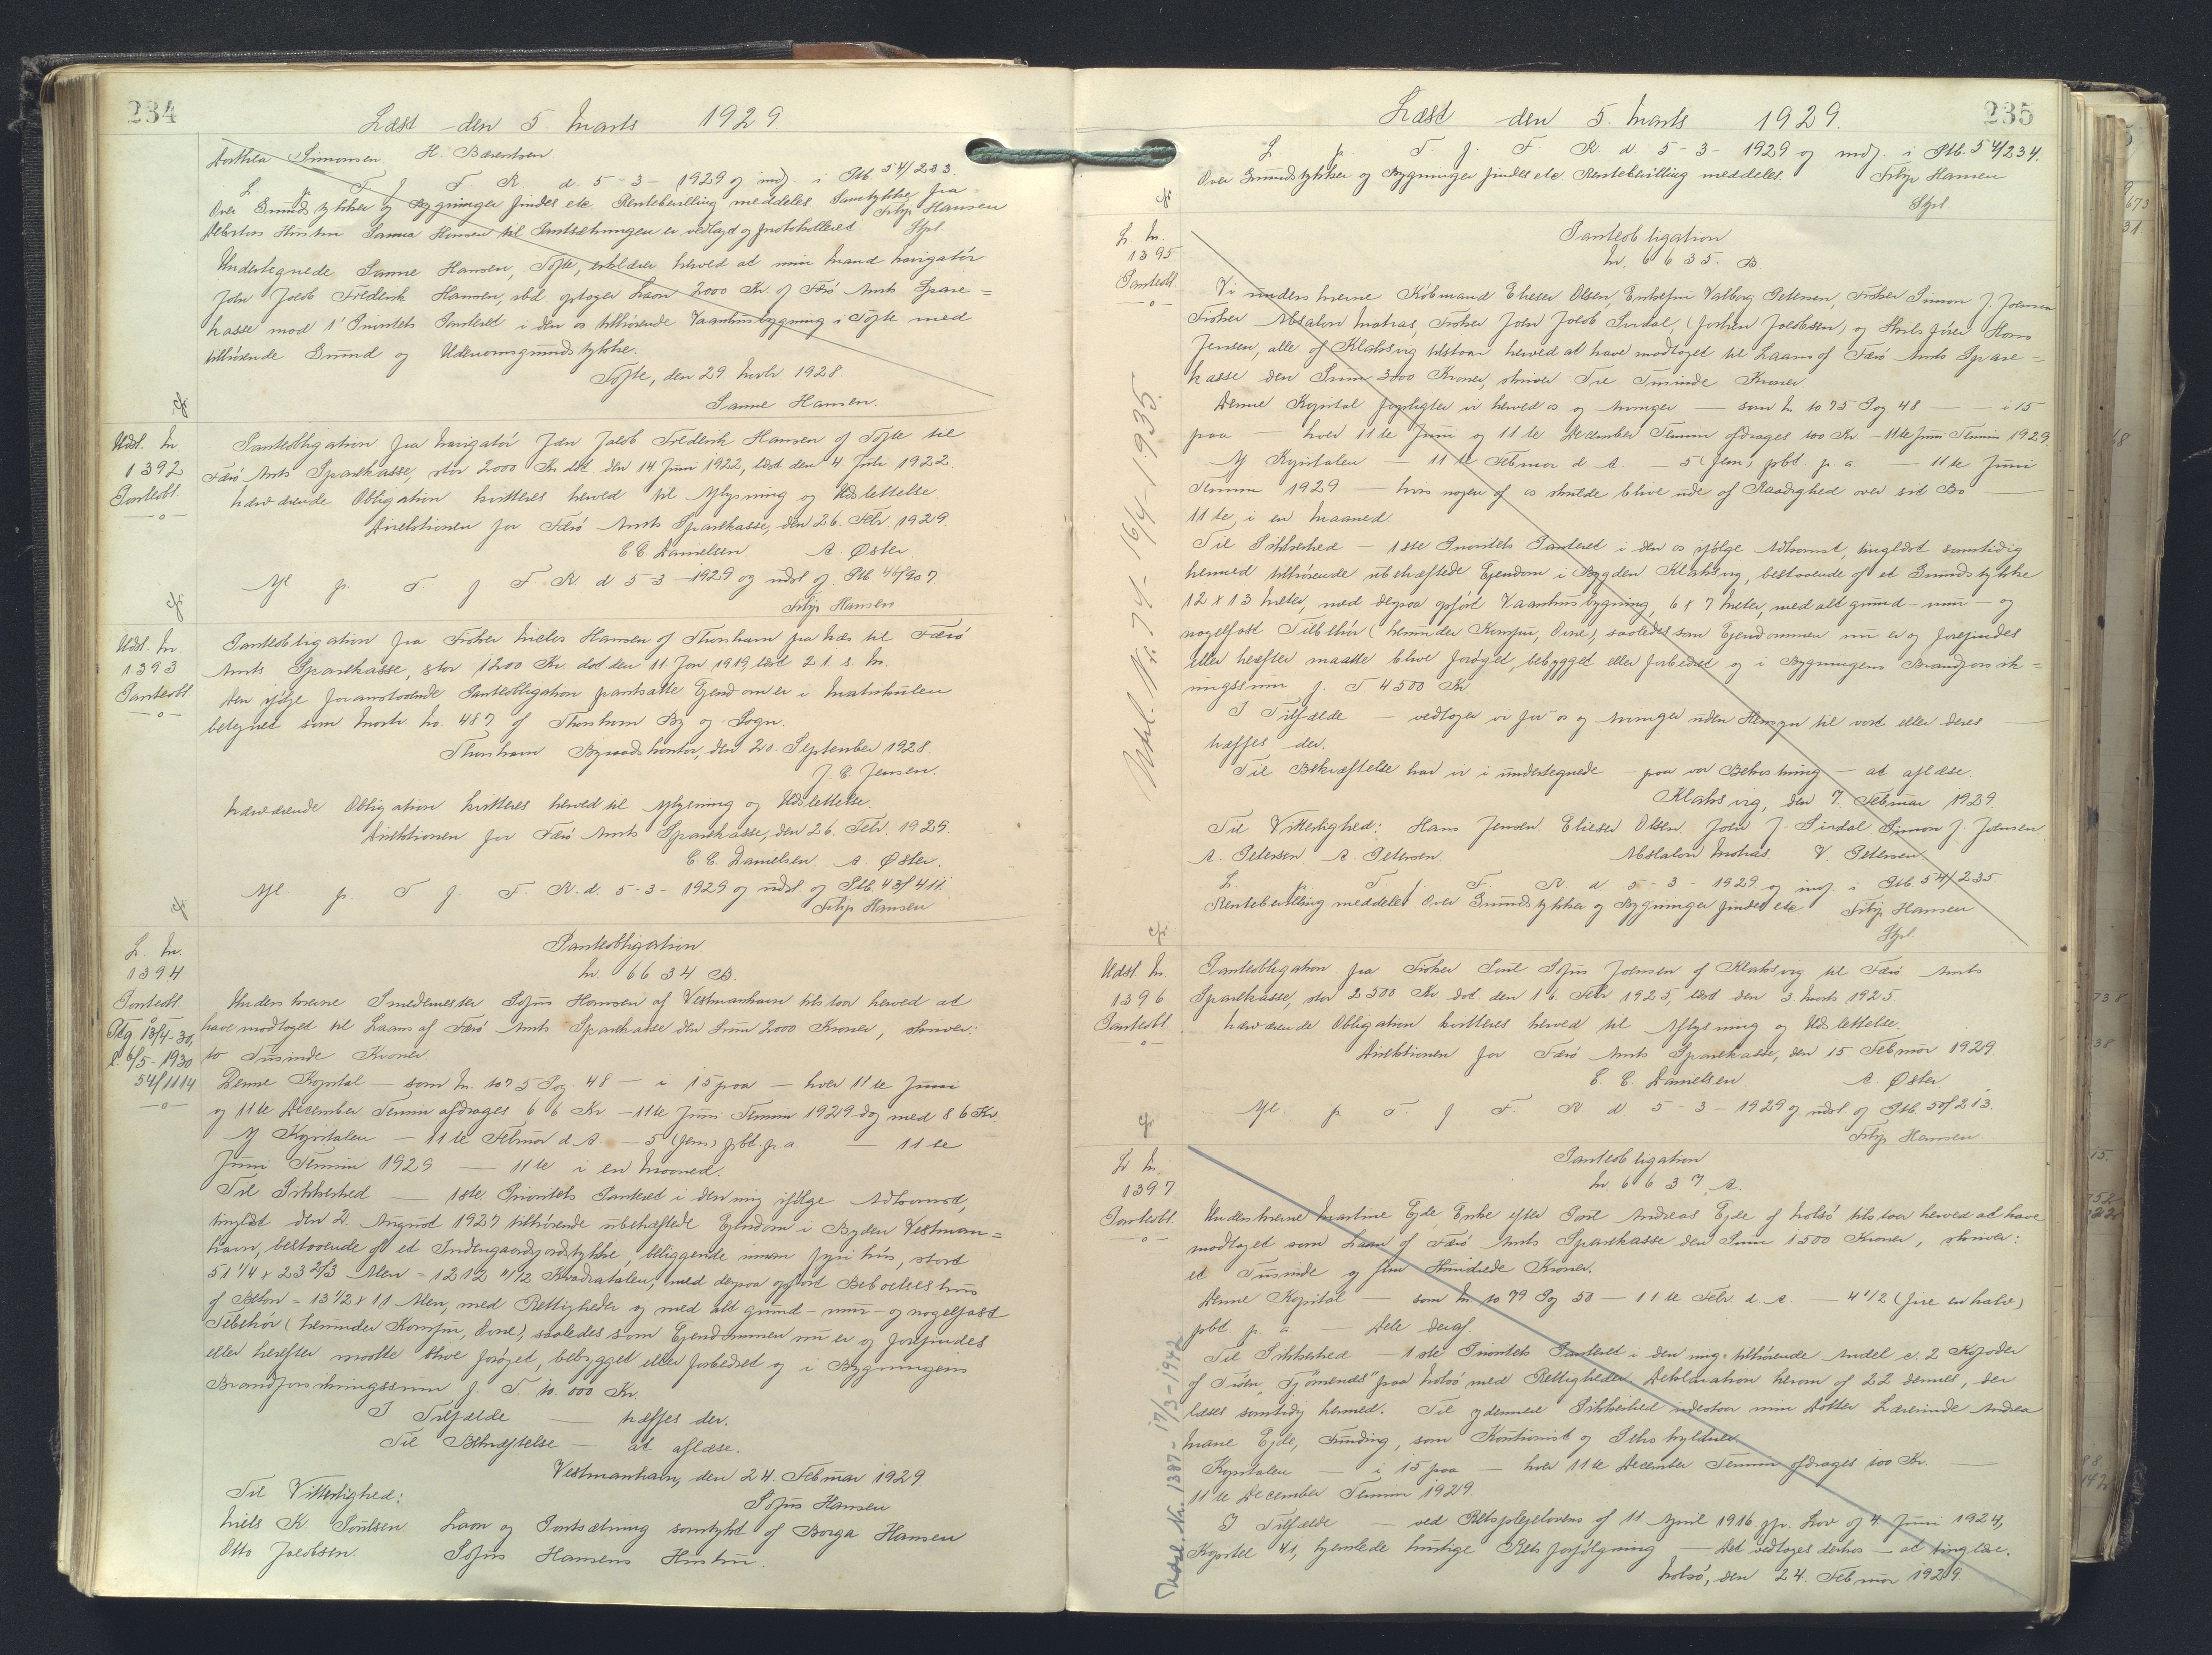 234
Læst den 5. Marts 1929.
Dorthea Simonsen H. Berentsen
L. p. T. f. F. R. d. 5-3-1929 og indf. i Ptb. 54/233.
Over Grundstykker og Bygninger findes ete. Rentebevilling meddeles. Samtykke fra
Debitors Hustru Sanna Hansen til Pantsætningen er vedlagt og protokolleret Filip Hansen
Stpl.
Undertegnede Sanne Hansen, Tofte, erklærer herved at min Mand Navigatør
John Jacob Frederik Hansen, sbd. optager Laan 2000 Kr. af Færø Amts Spare=
kasse mod 1' Prioritets Panteret i den os tilhørende Vaaningsbygning i Tofte med
tilhørende Grund og Udenomsgrundstykke.
Tofte, den 29. Novbr 1928.
Sanne Hansen.
Udsl. No
1392
Panteobl.
Panteobligation fra Navigatør Jan Jacob Frederik Hansen af Tofte til
Færø Amts Sparekasse, stor 2000 Kr. dat. den 14 Juni 1922, læst den 4. Juli 1922.
Nærværende Obligation kvitteres herved til Aflysning og Udslettelse.
Direktionen for Færø Amts Sparekasse, den 26. Febr. 1929.
E E Danielsen A. Øster.
Afl. p. T. f. F. R. d 5-3-1929 og udsl af Ptb 46/907.
Filip Hansen
Udsl. No.
1393
Panteobl.
Panteobligation fra Fisker Niclas Hansen af Thorshavn paa Næs til Færø
Amts Sparekasse, stor 1200 Kr. dat den 11 Jan 1919, læst 21. s. M.
Den ifølge foranstaaende Panteobligation pantsatte Ejendom er i Matrikulen
betegnet som Matr. No. 487 af Thorshavn By og Sogn.
Thorshavn Byraadskontor, den 20. September 1928.
J. C. Jensen.
Nærværende Obligation kvitteres herved til Aflysning og Udslettelse.
Direktionen for Færø Amts Sparekasse, den 26. Febr. 1929.
E E. Danielsen. A. Øster.
Afl. p. T. f. F. R. d. 5-3-1929 og udsl. af Ptb. 43/411.
Filip Hansen
L. No.
1394
Panteobl.
Pkg. 13/4-30,
l. 6/5-1930
54/1114
Panteobligation.
Nr. 6634 B.
Underskrevne Smedemester Sofus Hansen af Vestmanhavn tilstaar herved at
have modtaget til Laans af Færø Amts Sparekasse den Sum 2000 Kroner, skriver:
to Tusinde Kroner.
Denne Kapital — som No. 1075 Pag. 48 — i 15 paa — hver 11te Juni
og 11te December Termin afdrages 66 Kr. — 11te Juni Termin 1929 dog med 86 Kr.
Af Kapitalen — 11te Februar d. A. — 5 (fem) pCt. p. a. — 11te
Juni Termin 1929 — 11te i en Maaned.
Til Sikkerhed — 1ste Prioritets Panteret i den mig ifølge Adkomst,
tinglæst den 2. August 1927 tilhørende ubehæftede Ejendom i Byden Vestman=
havn, bestaaende af et Indengaardsjordstykke, beliggende innan fyri hús, stort
51 1/4 x 23 2/3 Alen = 1212 11/12 Kvadratalen, med derpaa opført Beboelseshus
af Beton = 13 1/2 x 11 Alen, med Rettigheder og med alt grund- mur- og nagelfast
Tilbehør (herunder Komfur, Ovne), saaledes som Ejendommen nu er og forefindes
eller herefter maatte blive forøget, bebygget eller forbedret og i Bygningens
Brandforsikringssum f. T. 10.000 Kr.
I Tilfælde — træffes der.
Til Bekræftelse — at aflæse.
Vestmanhavn, den 24. Februar 1929
Til Vitterlighed: Sofus Hansen
Niels K. Poulsen. Laan og Pantsætning samtykt af Borga Hansen
Otto Jacobsen. Sofus Hansens Hustru.
235
Læst den 5. Marts 1929.
L. p. T. f. F. R. d. 5-3-1929 og indf. i Ptb. 54/234.
Over Grundstykker og Bygninger findes ete Rentebevilling meddeles. Filip Hansen
Stpl.
L. No.
1395
Panteobl.
Udsl. Nr. 74 - 16/4-1935.
Panteobligation
Nr. 6635. B
Vi underskrevne Købmand Elieser Olsen, Enkefru Valborg Petersen, Fisker Simon J. Joensen
Fisker Absalon Matras, Fisker John Jacob Sivdal, (Jachen Jacobsen) og Skibsfører Hans
Jensen, alle af Klaksvig tilstaar herved at have modtaget til Laans af Færø Amts Spare=
kasse den Sum 3000 Kroner, skriver Tre Tusinde Kroner.
Denne Kapital forpligter vi herved os og Arvinger — som No 1075 Pag 48 — i 15
paa — hver 11te Juni og 11te December Termin afdrages 100 Kr. — 11te Juni Termin 1929.
Af Kapitalen — 11te Februar d. A. — 5 (fem) pCt. p. a. — 11te Juni
Termin 1929 — hvis nogen af os skulde blive ude af Raadighed over sit Bo —
11te, i en Maaned.
Til Sikkerhed — 1ste Prioritets Panteret i den os ifølge Adkomst, tinglæst samtidig
hermed tilhørende ubehæftede Ejendom i Bygden Klaksvig, bestaaende af et Grundstykke
12 x 13 Meter, med derpaa opført Vaaningsbygning, 6 x 7 Meter, med alt grund- mur- og
nagelfast Tilbehør (herunder Komfur, Ovne), saaledes som Ejendommen nu er og forefindes
eller herefter maatte blive forøget, bebygget eller forbedret og i Bygningens Brandforsik=
ringssum f. T 4500 Kr.
I Tilfælde — vedtager vi for os og Arvinger uden Hensyn til vort eller deres —
træffes der.
Til Bekræftelse har vi i undertegnede — paa vor Bekostning — at aflæse.
Klaksvig, den 7. Februar 1929.
Til Vitterlighed: Hans Jensen. Elieser Olsen. John J. Sivdal Simon J. Joensen.
A. Petersen. A. Petersen. Abslalon Matras. V. Petersen.
L. p. T. f. F. R. d 5-3-1929 og indf. i Ptb. 54/235
Rentebevilling meddelet Over Grundstykker og Bygninger findes ete Filip Hansen
Stpl.
Udsl. No
1396
Panteobl.
Panteobligation fra Fisker Poul Sofus Joensen af Klaksvig til Færø Amts
Sparekasse, stor 2500 Kr. dat. den 16. Febr 1925, læst den 3. Marts 1925
Nærværende Obligation kvitteres herved til Aflysning og Udslettelse.
Direktionen for Færø Amts Sparekasse, den 15. Februar 1929.
E. E. Danielsen. A. Øster
Afl. p. T. f. F. R d 5-3-1929 og udsl af Ptb. 50/213.
Filip Hansen.
L. No.
1397
Panteobl.
Udsl. Nr. 1387 - 17/3-1942
Panteobligation
Nr. 6637 A.
Underskrevne Martine Ejde, Enke efter Poul Andreas Ejde af Nolsø tilstaar herved at have
modtaget som Laan af Færø Amts Sparekasse den Sum 1500 Kroner, skriver:
et Tusinde og fem Hundrede Kroner.
Denne Kapital — som No 1079 Pag 50 — 11te Febr. d. A. — 4 1/2 (fire en halv)
pCt p. a — Dele deraf.
Til Sikkerhed — 1ste Prioritets Panteret i den mig tilhørende Andel
af paa Nolsø med Rettigheder Deklaration herom af 22 dennes, der
læses samtidig hermed. Til ydermere Sikkerhed indestaar min Datter Lærerinde Andrea
Marie Ejde, Funding, som Kautionist og Selvskyldner.
Kapitalen — i 15 paa — hver 11te December Termin afdrages 100 Kr. —
11te December Termin 1929.
I Tilfælde — ved Retsplejelovens af 11. April 1916 jfr. Lov af 4. Juni 1924,
Kapitel 41, hjemlede hurtige Retsforfølgning — Det vedtages derhos — at tinglæse.
Nolsø, den 24. Februar 1929.